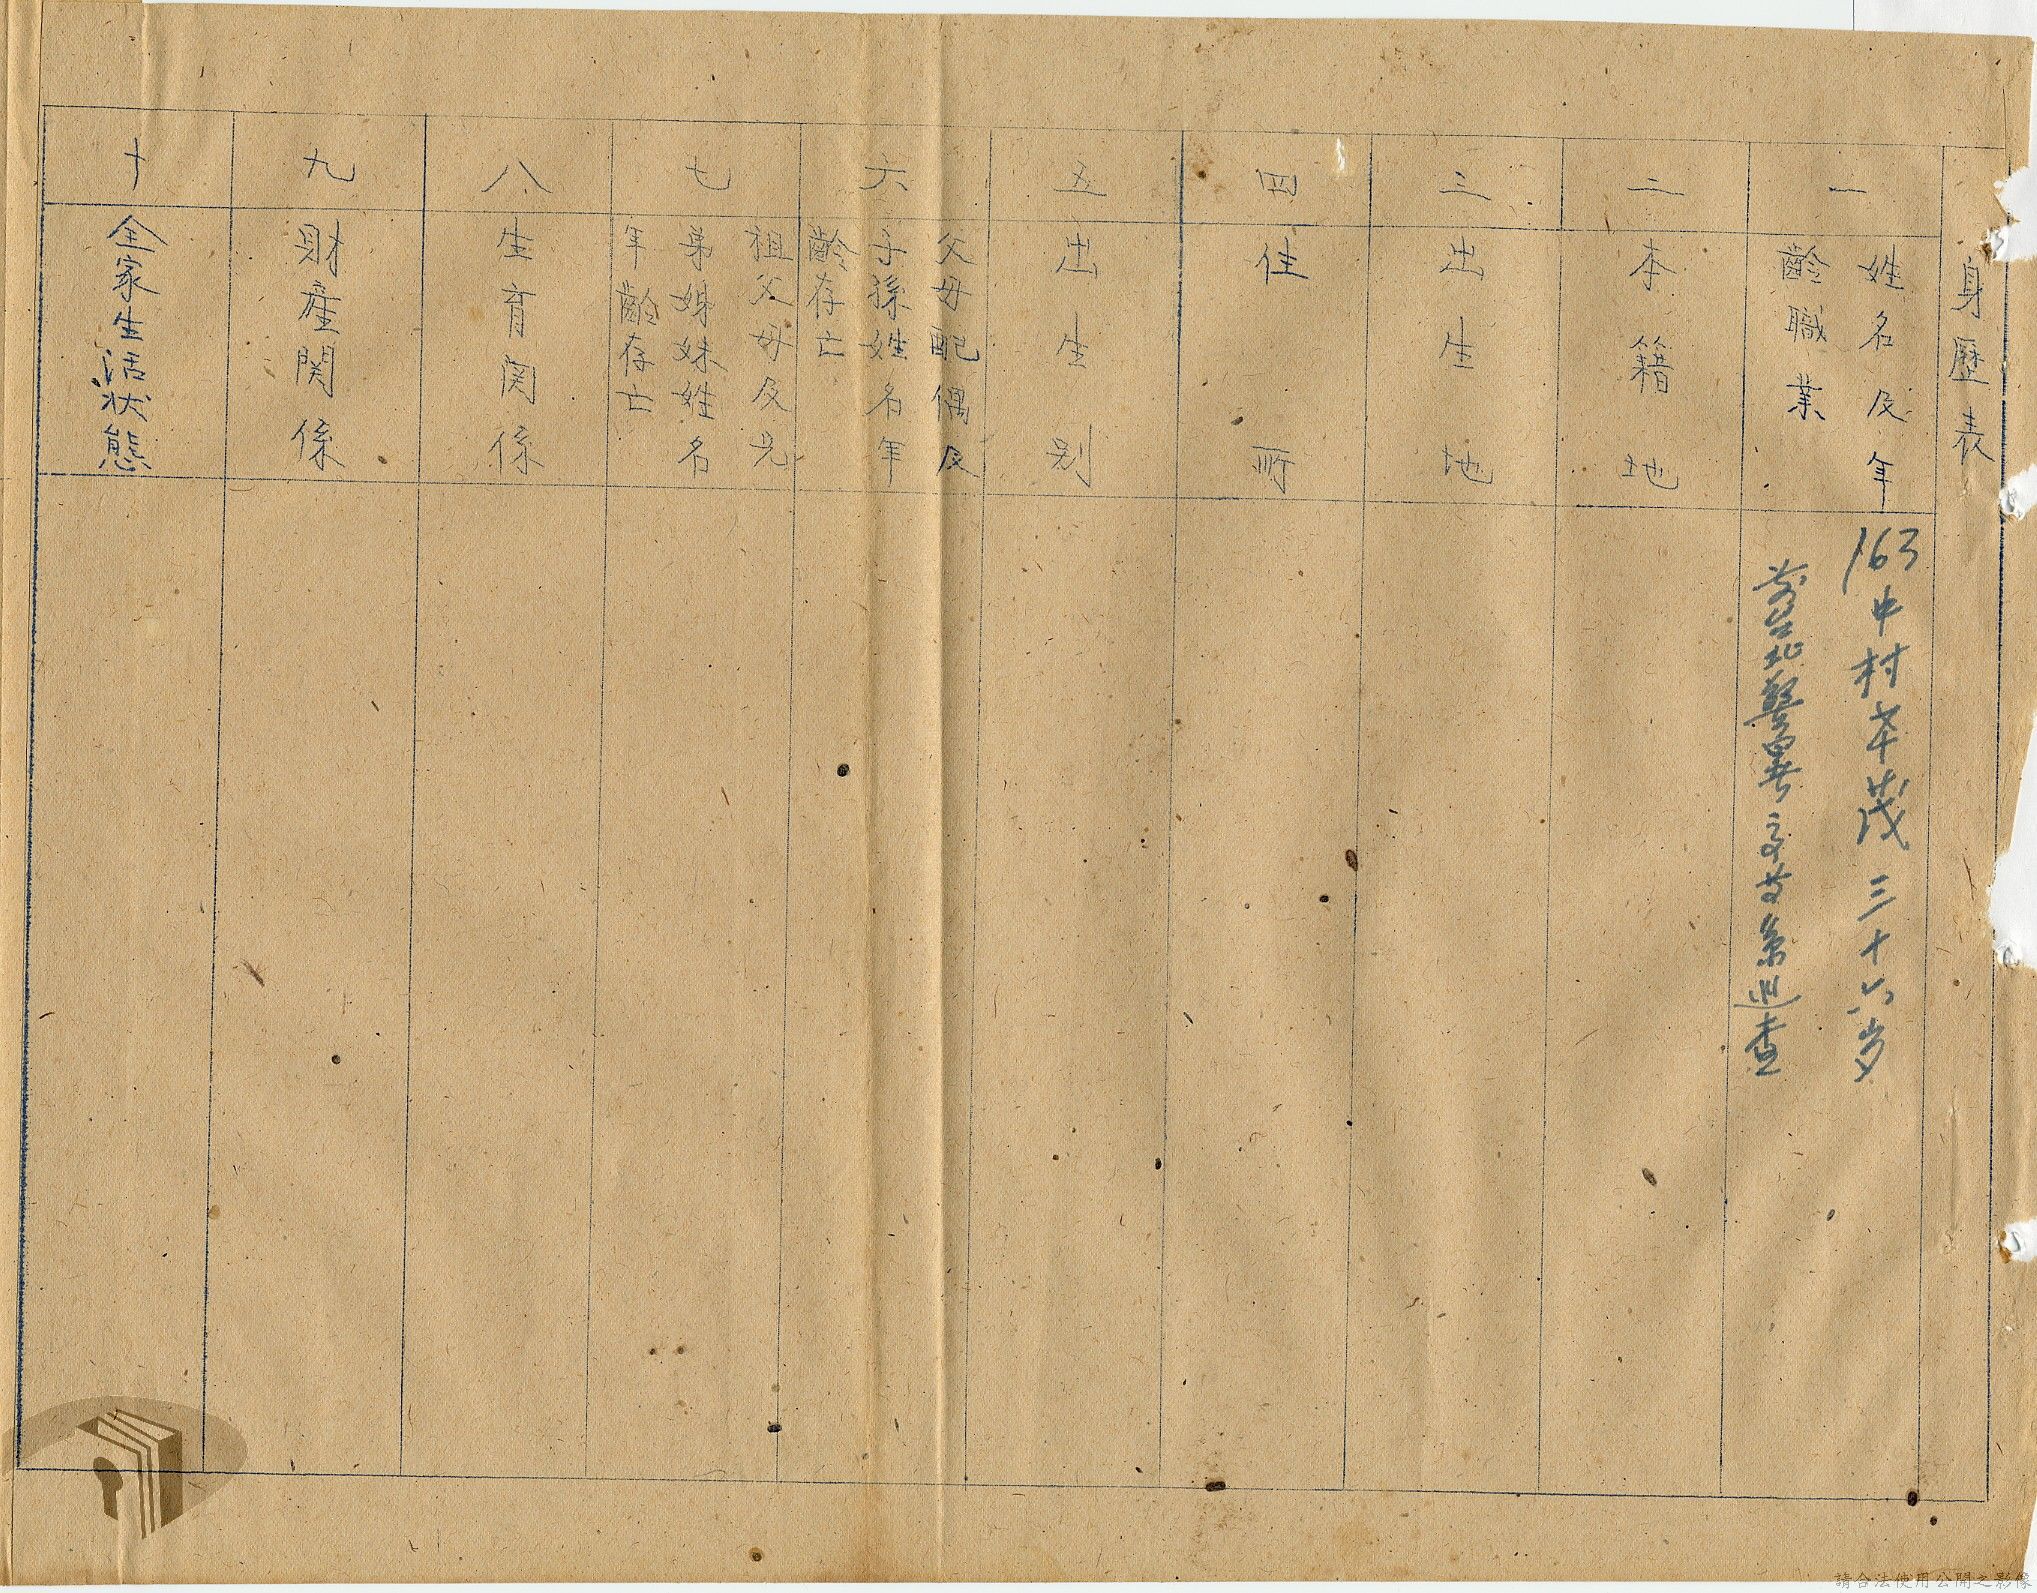 身歷表
一
姓名及年
齡職業
163 中村本茂 三十六岁
前台北警署
巡查
二
本籍地
三
出生地
四
住所
五
出生別
六
父母配偶及
子孫姓名年
齡存亡
七
祖父母及兄
弟姊妹姓名
年齡存亡
八
生育関係
九
財産関係
十
全家生活状態
請合法使用公開之影像